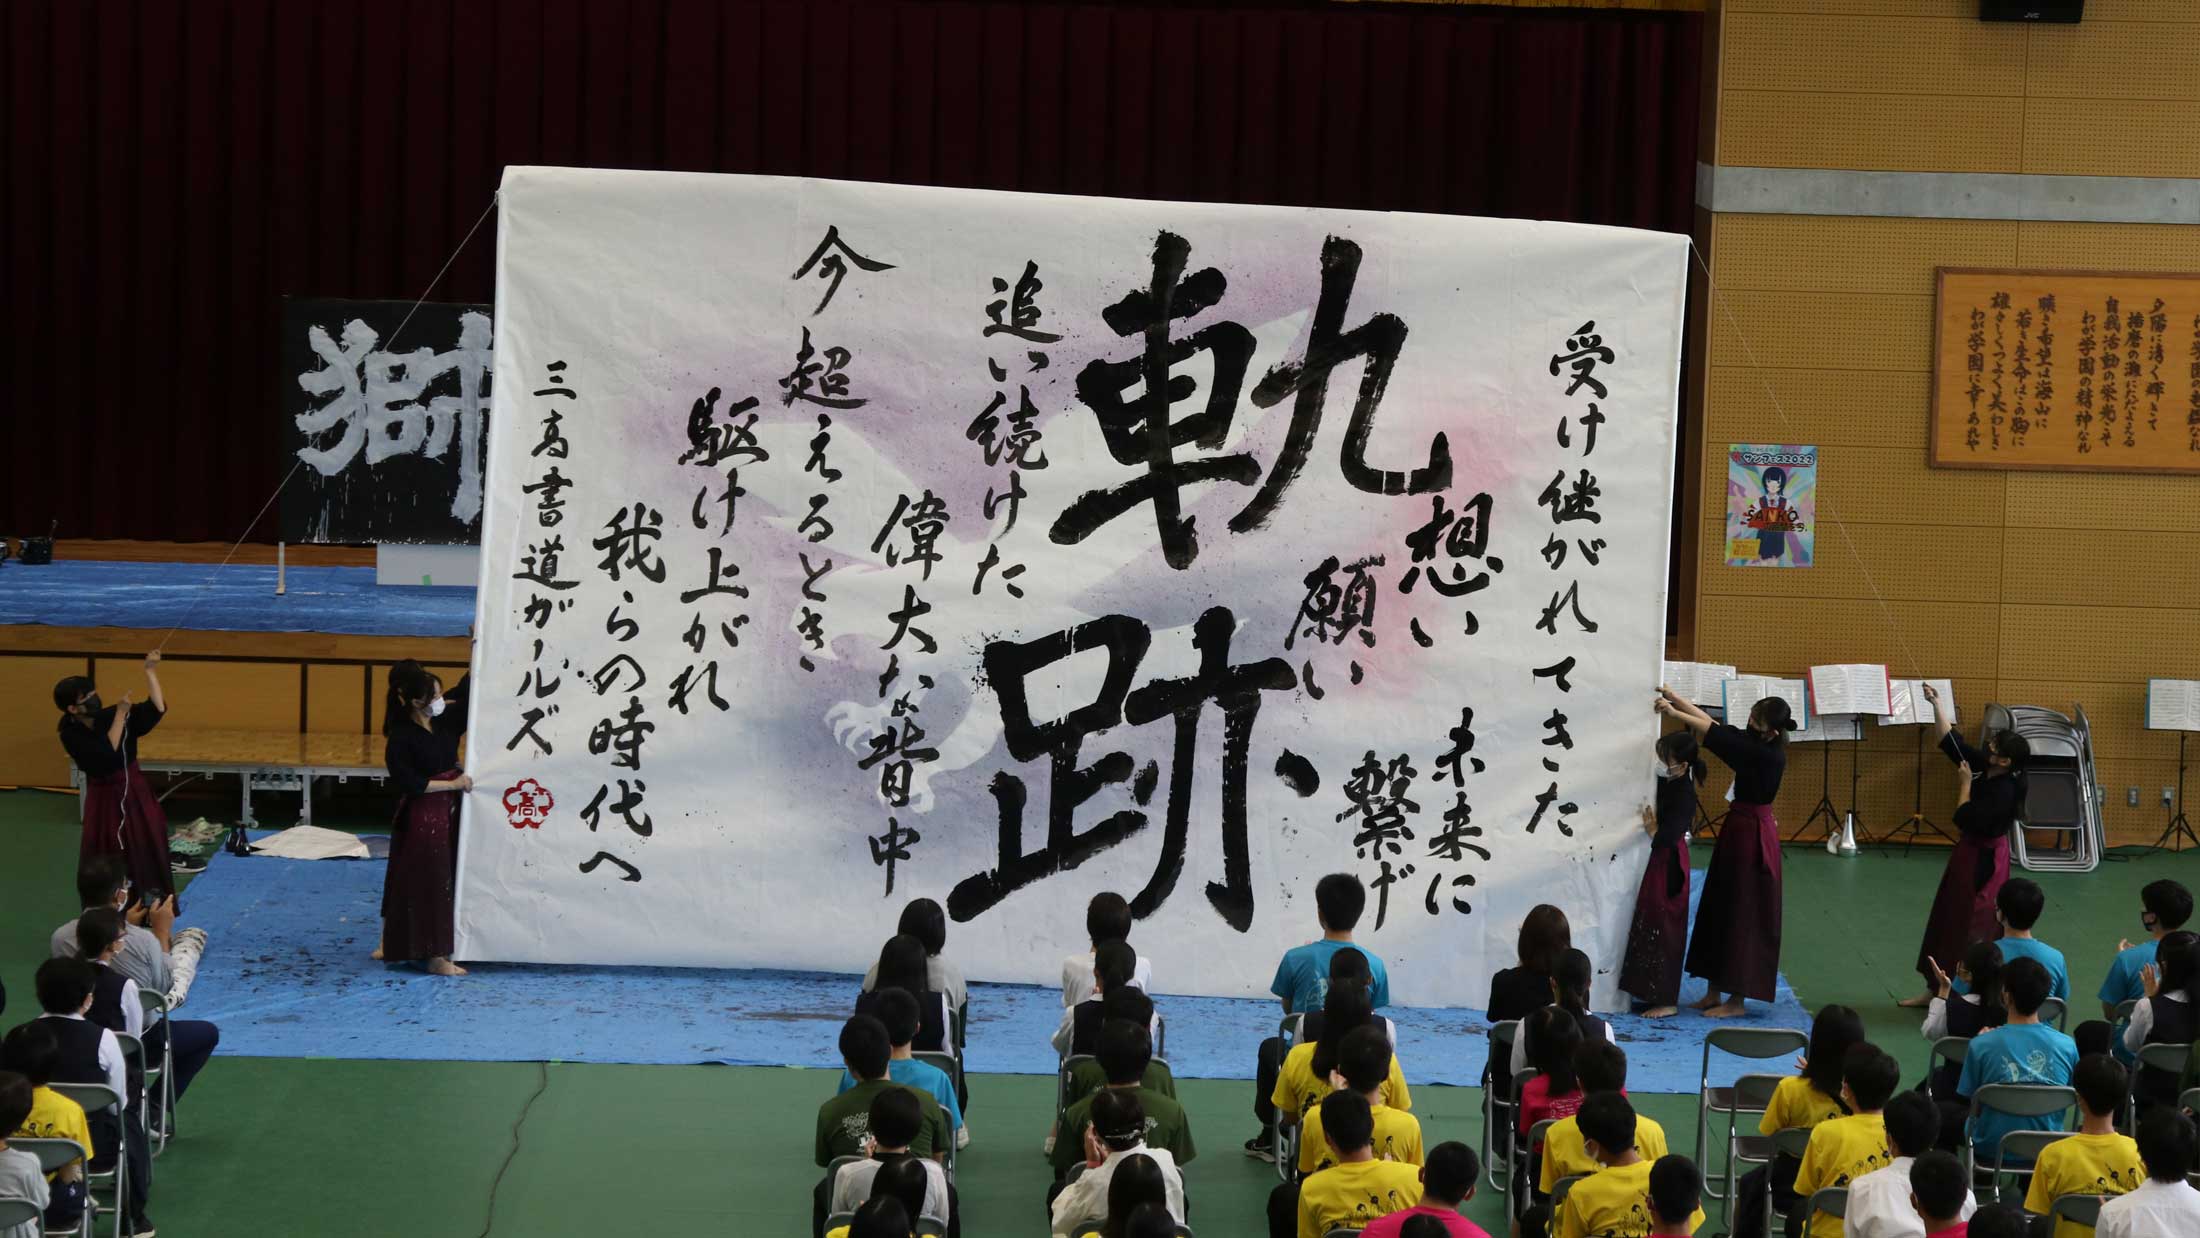 受け継がれてきた
想い
未来に
願い
繋げ
軌跡
追い続けた
偉大な背中
今
超えるとき
駆け上がれ
我らの時代へ
三高書道ガールズ
高
獅
夕陽に清く輝きて
播磨の灘にたたえる
自我活動の栄光こそ
わが学園の精神なれ
曠き希望は海山に
若き生命はこの胸に
雄々しくつよく美わしき
わが学園に幸あれや
サンフェス2022
SANKO
JVC